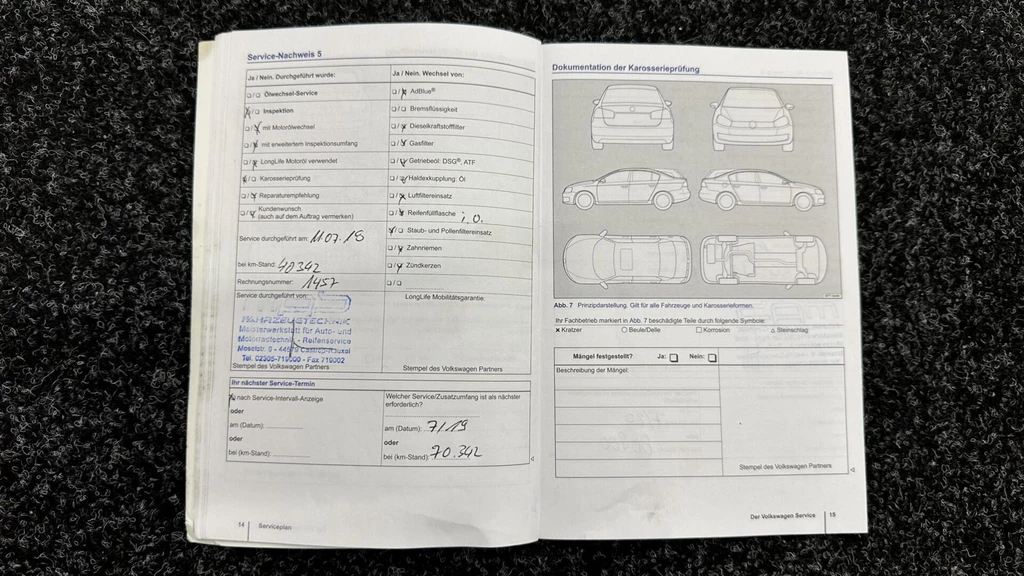 Service-Nachweis 5
Ja / Nein. Durchgeführt wurde:
☐/☐ Ölwechsel-Service
☒/☐ Inspektion
☐/☒ mit Motorölwechsel
☐/☒ mit erweitertem Inspektionsumfang
☐/☒ LongLife Motoröl verwendet
☒/☐ Karosserieprüfung
☐/☒ Reparaturempfehlung
☐/☒ Kundenwunsch
(auch auf dem Auftrag vermerken)
Service durchgeführt am: 11.07.18
bei km-Stand: 40342
Rechnungsnummer: 1457
Service durchgeführt von:
FAHRZEUGTECHNIK
Meisterwerkstatt für Auto- und
Motorradtechnik - Reifenservice
44579 Castrop-Rauxel
Tel. 02305-719000 - Fax 719002
Stempel des Volkswagen Partners
Ja / Nein. Wechsel von:
☐/☒ AdBlue®
☐/☐ Bremsflüssigkeit
☐/☒ Dieselkraftstofffilter
☐/☒ Gasfilter
☐/☒ Getriebeöl: DSG®, ATF
☐/☒ Haldexkupplung: Öl
☐/☒ Luftfiltereinsatz
☐/☒ Reifenfüllflasche i.O.
☒/☐ Staub- und Pollenfiltereinsatz
☐/☒ Zahnriemen
☐/☒ Zündkerzen
☐/☐
LongLife Mobilitätsgarantie:
Stempel des Volkswagen Partners
Ihr nächster Service-Termin
☒ nach Service-Intervall-Anzeige
oder
am (Datum):
oder
bei (km-Stand):
Welcher Service/Zusatzumfang ist als nächster
erforderlich?
am (Datum): 7/19
oder
bei (km-Stand): 70.342
14 Serviceplan
Dokumentation der Karosserieprüfung
Abb. 7 Prinzipdarstellung. Gilt für alle Fahrzeuge und Karosserieformen.
Ihr Fachbetrieb markiert in Abb. 7 beschädigte Teile durch folgende Symbole:
× Kratzer ○ Beule/Delle ☐ Korrosion △ Steinschlag
Mängel festgestellt? Ja: ☐ Nein: ☐
Beschreibung der Mängel:
Stempel des Volkswagen Partners
Der Volkswagen Service 15